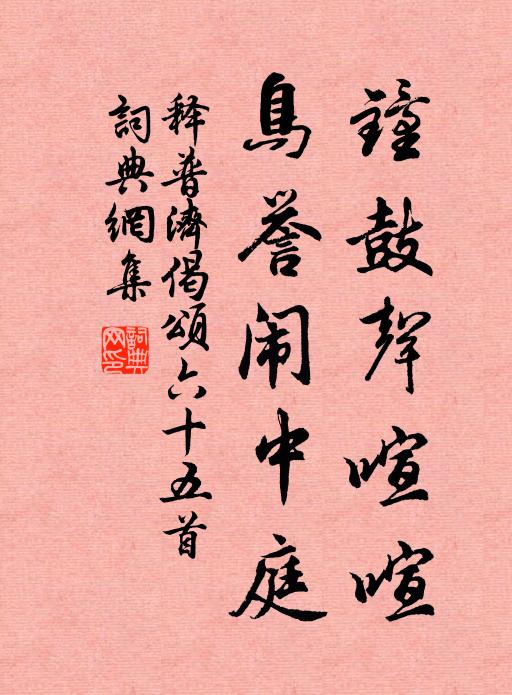 鐘鼓聲喧喧
鳥誉闹中庭
释普濟偈頌六十五首
詞典網集
詞典网印